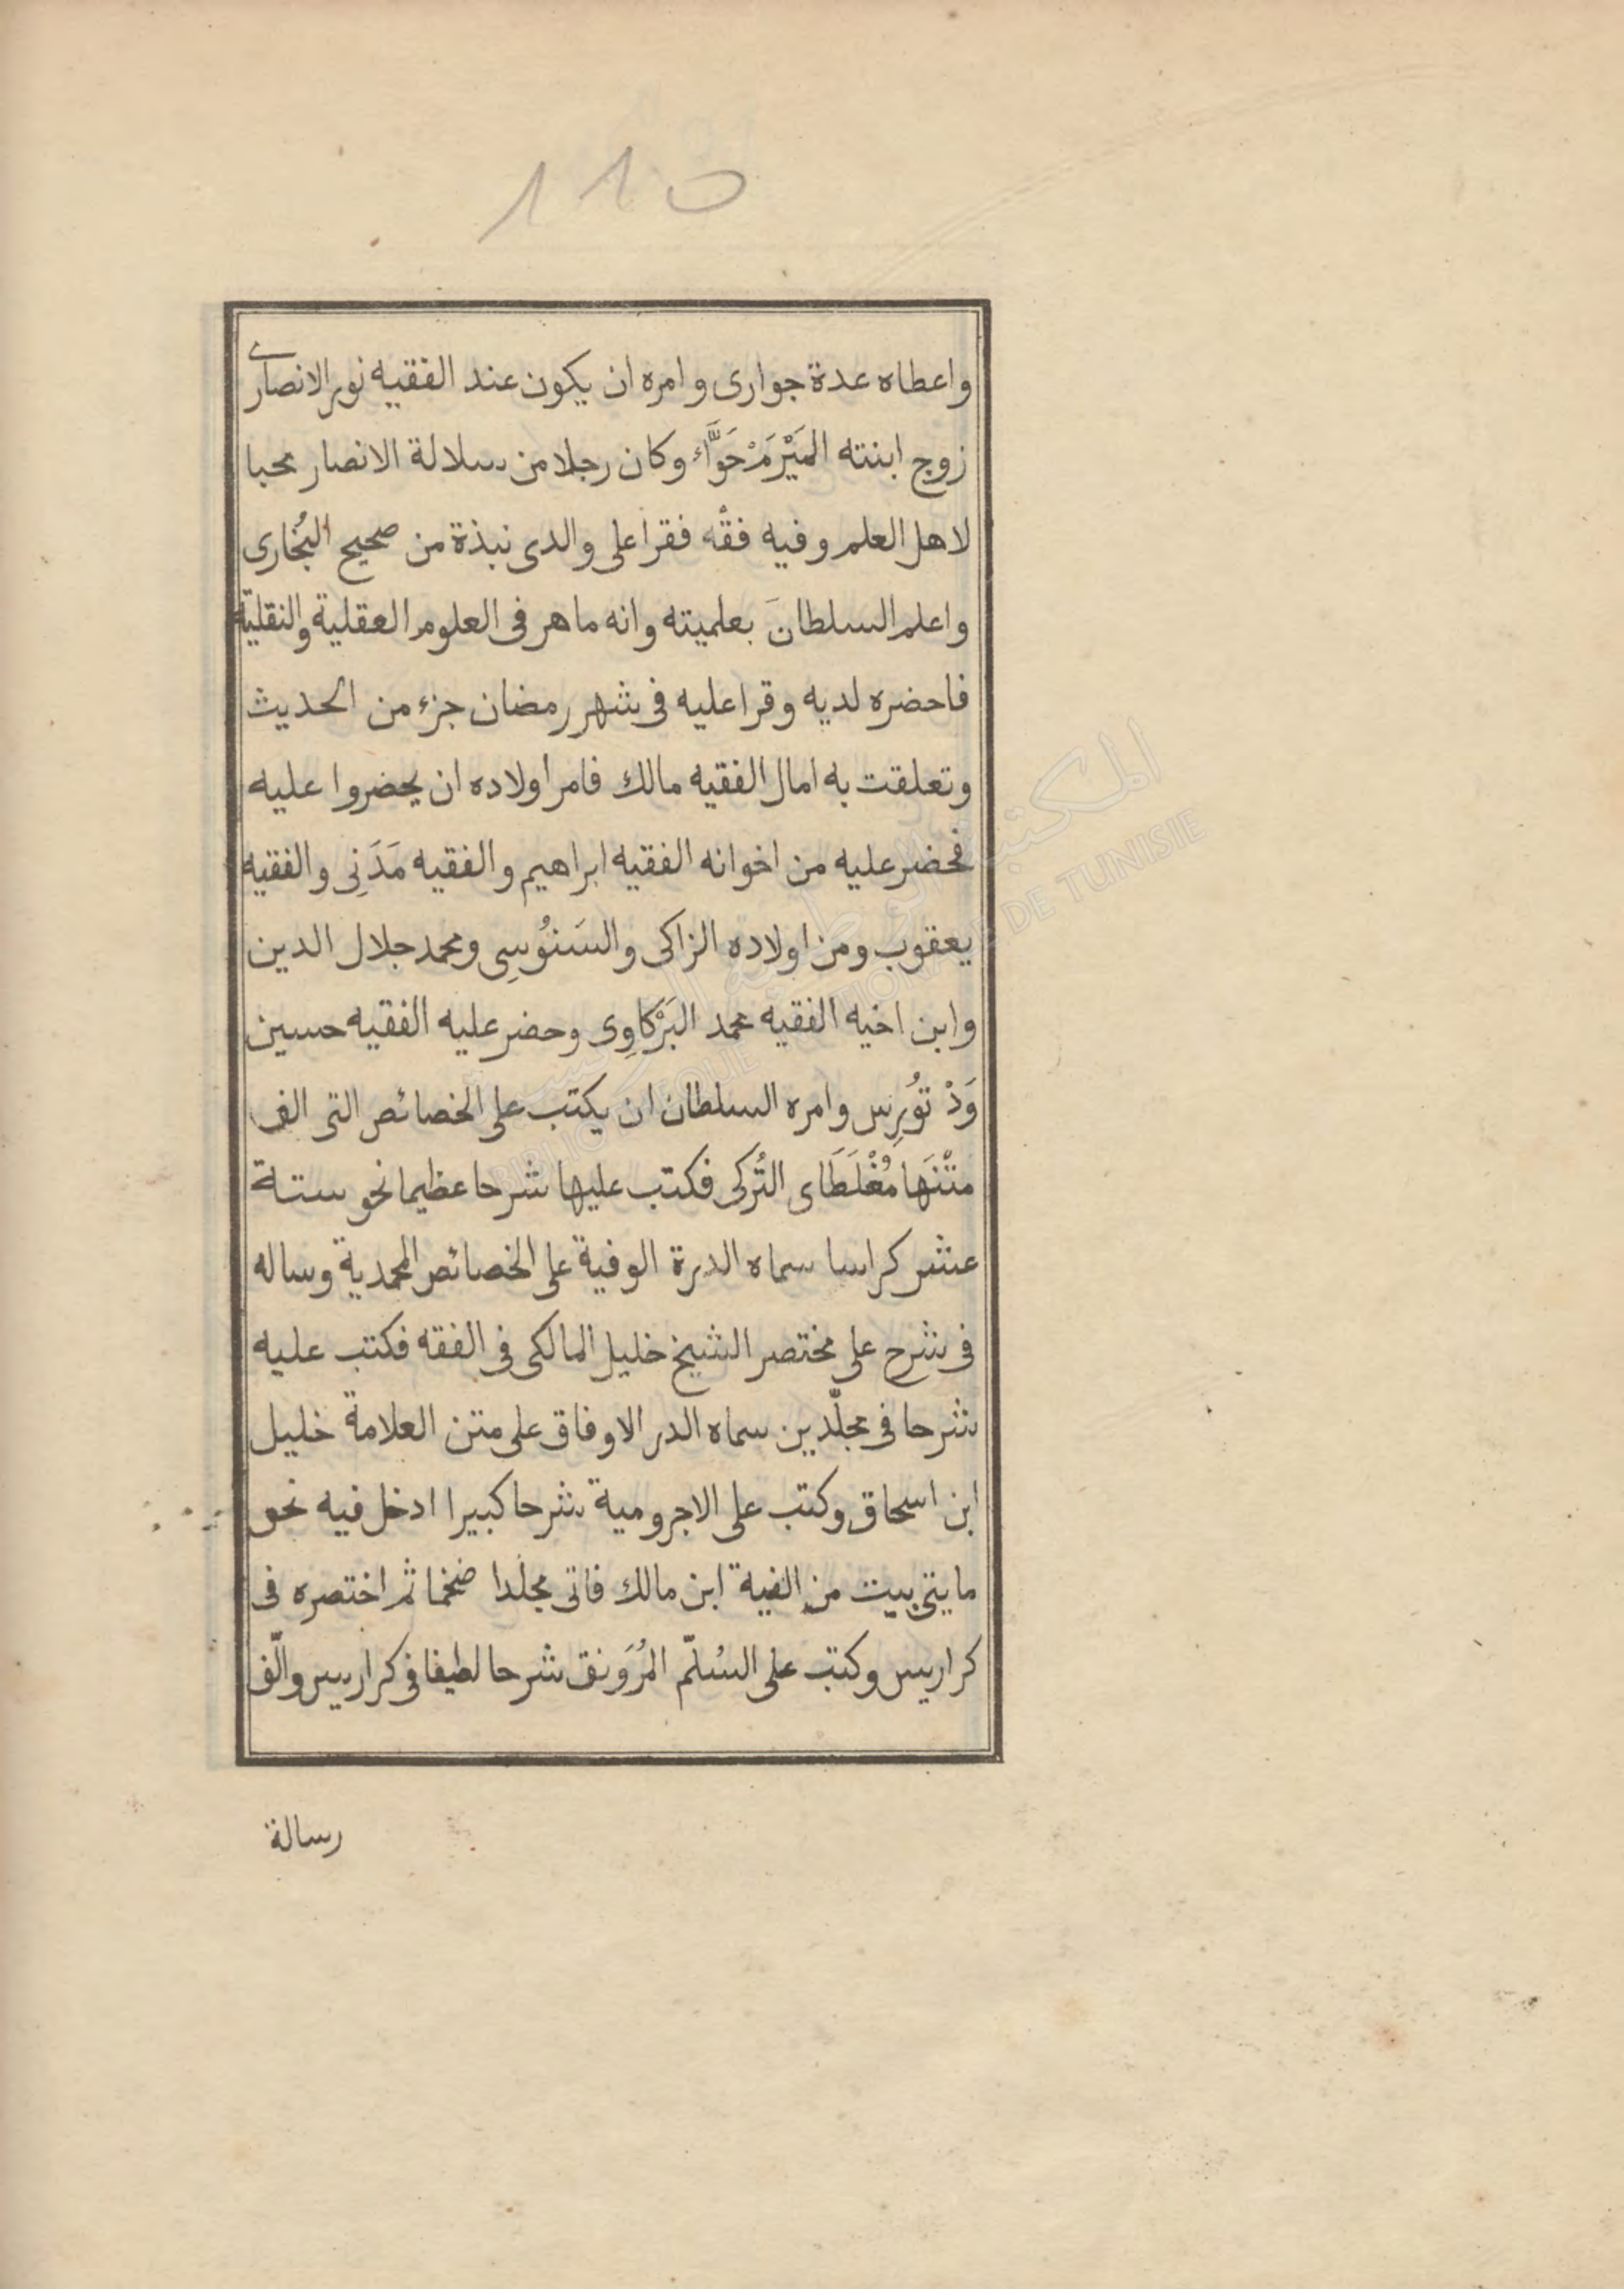 110
واعطاه عدة جوارى وامره ان يكون عند الفقيه نور الانصارى
زوج ابنته المَيْرَمْ حَوَّاء وكان رجلا من سلالة الانصار محبا
لاهل العلم وفيه فقْه فقرا على والدى نبذة من صحيح البُخارى
واعلم السلطانَ بعلميته وانه ماهر فى العلوم العقلية والنقلية
فاحضره لديه وقرا عليه فى شهر رمضان جزء من الحديث
وتعلقت به امال الفقيه مالك فامر اولاده ان يحضروا عليه
فحضر عليه من اخوانه الفقيه ابراهيم والفقيه مَدَنِى والفقيه
يعقوب ومن اولاده الزاكى والسَنوُسِى ومحمد جلال الدين
وابن اخيه الفقيه محمد البَرْكاوِى وحضر عليه الفقيه حسين
وَدْ توُرِس وامره السلطان ان يكتب على الخصائص التى الف
متْنَها مُغْلَطَاى التُركى فكتب عليها شرحا عظيما نحو ستة
عشر كراسا سماه الدرة الوفية على الخصائص المحمدية وساله
فى شرح على مختصر الشيخ خليل المالكى فى الفقه فكتب عليه
شرحا فى مجلّدين سماه الدر الاوفاق على متن العلامة خليل
ابن اسحاق وكتب على الاجرومية شرحا كبيرا ادخل فيه نحو
مايتى بيت من الفية ابن مالك فاتى مجلدا ضخما ثم اختصره فى
كراريس وكتب على السُلّم المُرَونق شرحا لطيفا فى كراريس والّف
رسالة
المكتبة الوطنية
BIBLIOTHEQUE NATIONALE DE TUNISIE